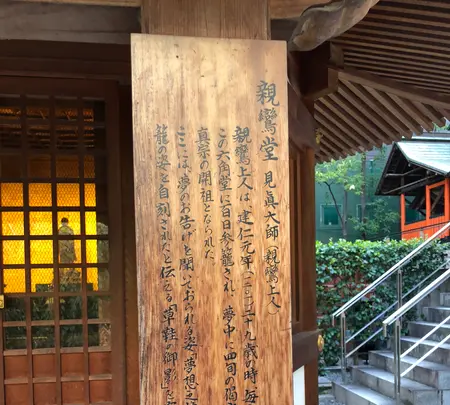 親鸞堂 見真大師(親鸞上人)
親鸞上人は、建仁元年(一二〇一)二十九歳の時、毎
この六角堂に百日参籠され、夢中に四句の偈
真宗の開祖となられた。
ここには、夢のお告げを聞いておられる姿「夢想之
龍の姿を自刻されたと伝える「草鞋の御影」を